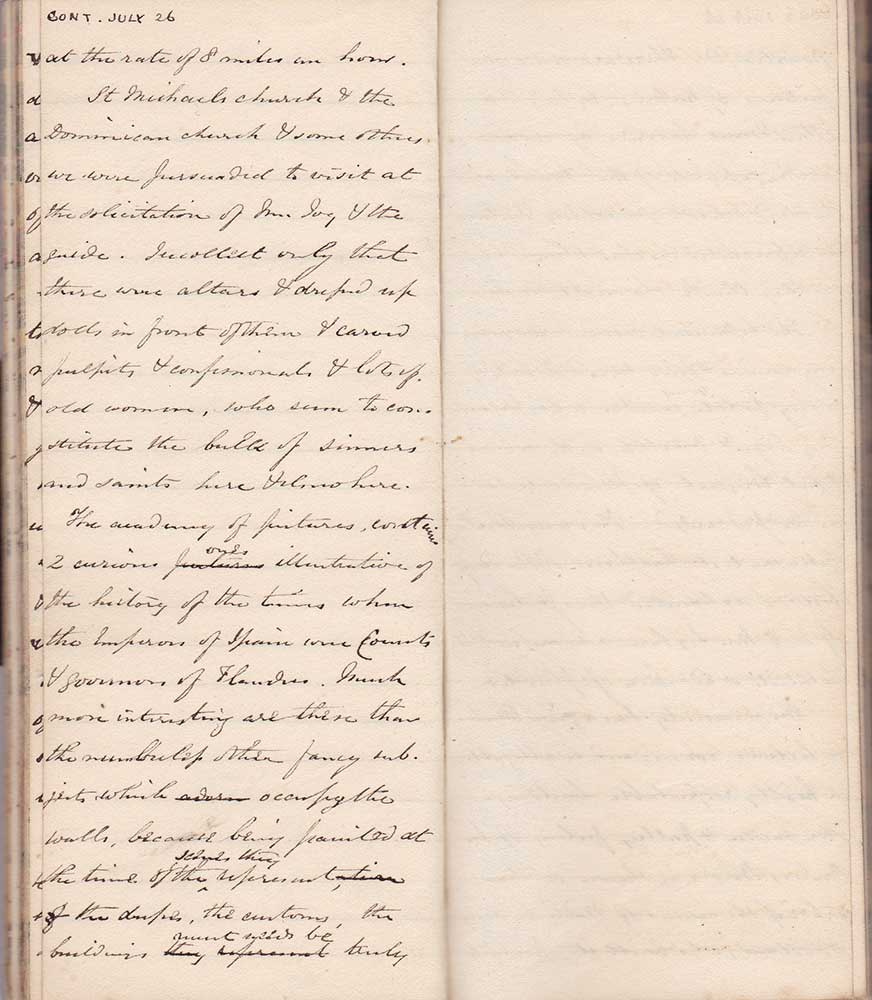 CONT. JULY 26
at the rate of 8 miles an hour.
St Michaels church & the
Dominican church & some others
we were persuaded to visit at
the solicitation of Mr. Joy & the
guide. I recollect only that
there were altars & dressed up
dolls in front of them & carved
pulpits & confessionals & lots of
old women, who seem to con-
stitute the bulk of sinners
and saints here & elsewhere.
The academy of pictures, contains
ones
2 curious pictures illustrative of
the history of the times when
the Emperors of Spain were Counts
& governors of Flandres. Much
more interesting are these than
the numberless other fancy sub-
jects which adorn occupy the
walls, because being painted at
scenes they
the time of the representation
of the dresses, the customs, the
must needs be
buildings they represent truly